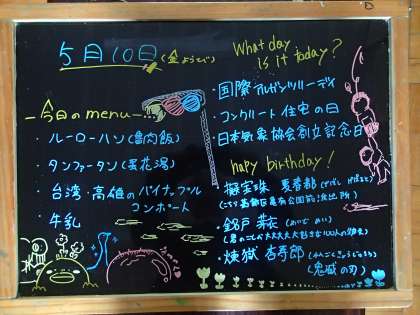 5月10日(金ようび)
What day
is it today?
・国際アルゼンチンハーディ
・コンクリート住宅の日
・日本気象協会創立記念日
今日のmenu
・ルーローハン(魯肉飯)
・タンファータン(蛋花湯)
・台湾・高雄のパイナップル
コンポート
・牛乳
hapy birthday!
・擬宝珠 夏春都
(こち亀
公園前派出所)
・錦戸 芽衣
(君のことが大大大大大好きな100人の彼女)
・煉獄 杏寿郎
(鬼滅の刃)